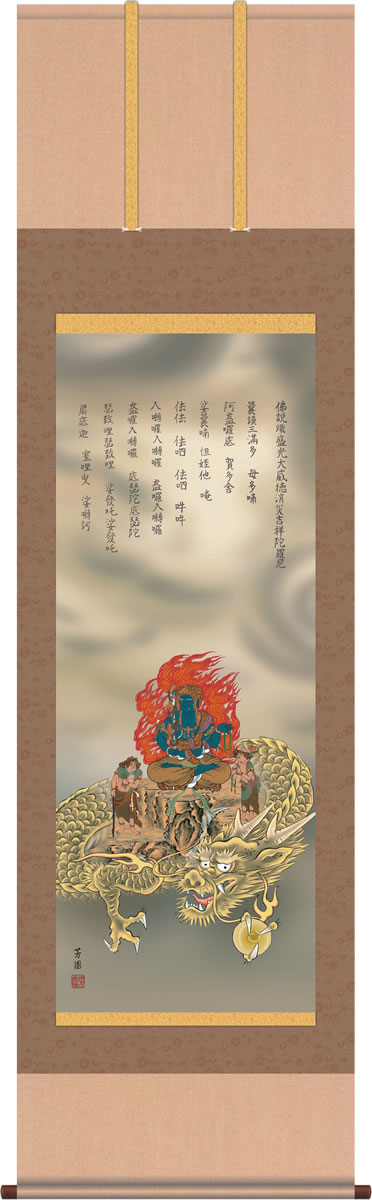 佛説熾盛光大威徳消災吉祥陀羅尼
曩謨三満多 母多喃
阿盋囉底 賀多舍
娑曩喃 怛姪他 唵
佉佉 佉呬 佉呬 吽吽
入嚩囉入嚩囉 盋囉入嚩囉
盋囉入嚩囉 底瑟陀底瑟陀
瑟致哩瑟致哩 娑發吒娑發吒
扇底迦 室哩曳 娑嚩訶
芳園